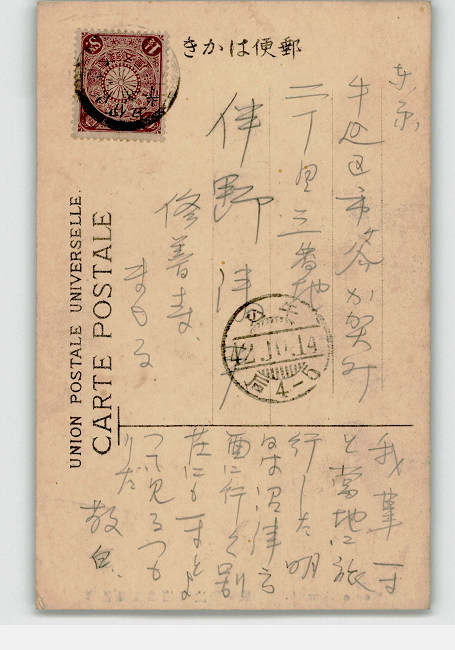 きかは便郵
UNION POSTALE UNIVERSELLE.
CARTE POSTALE
東京
牛込区市ヶ谷加賀町
二丁目三番地
伊野
修善寺
まもる
42.10.14
4-5
我輩
と当地に旅
行した明
日は沼津方
面に行く別
荘にも
つて見るつも
りだ
敬白